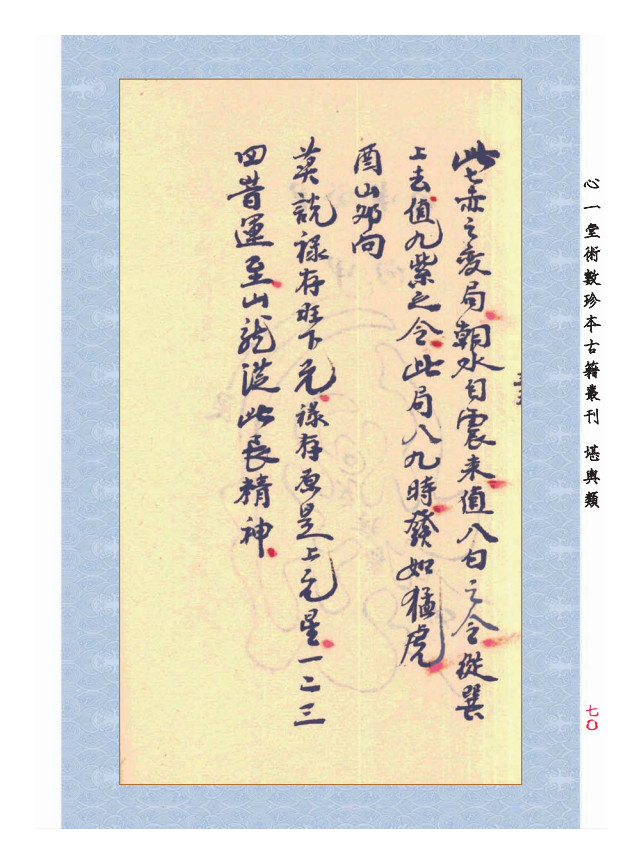 此七赤之变局朝水自震来值八白之令從巽
上去值九紫之令此局八九時發如猛虎
酉山夘向
莫説禄存旺下元禄存原是上元星一二三
四普運至山龍從此長精神
心一堂術數珍本古籍叢刊 堪輿類
七〇